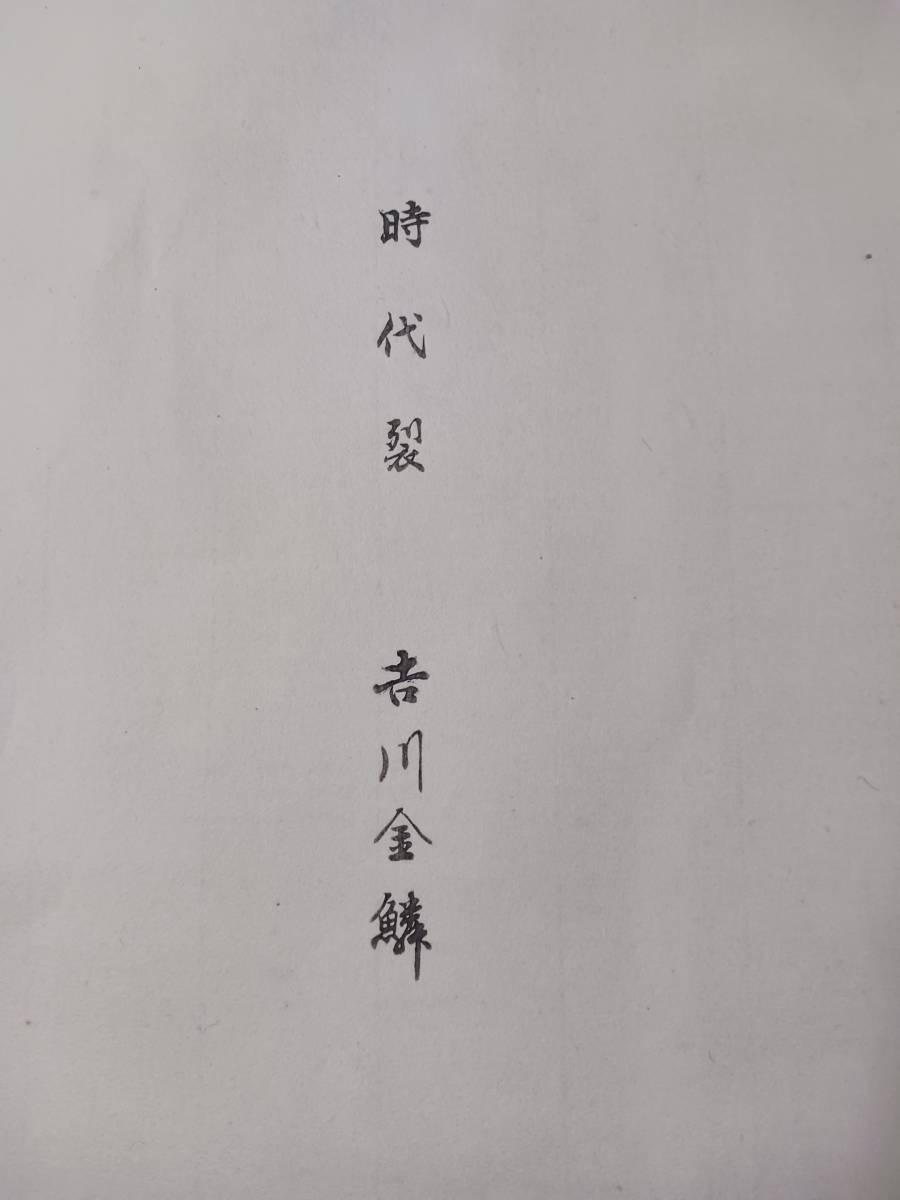 時代裂 吉川金鱗